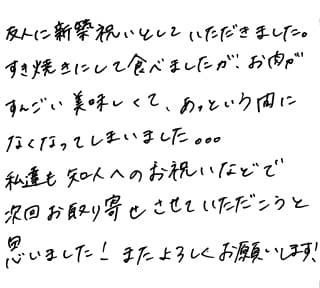 友人に新築祝いとしていただきました。
すき焼きにして食べましたが、お肉が
すんごい美味しくて、あっという間に
なくなってしまいました。。。
私達も知人へのお祝いなどで
次回お取り寄せさせていただこうと
思いました！またよろしくお願いします！